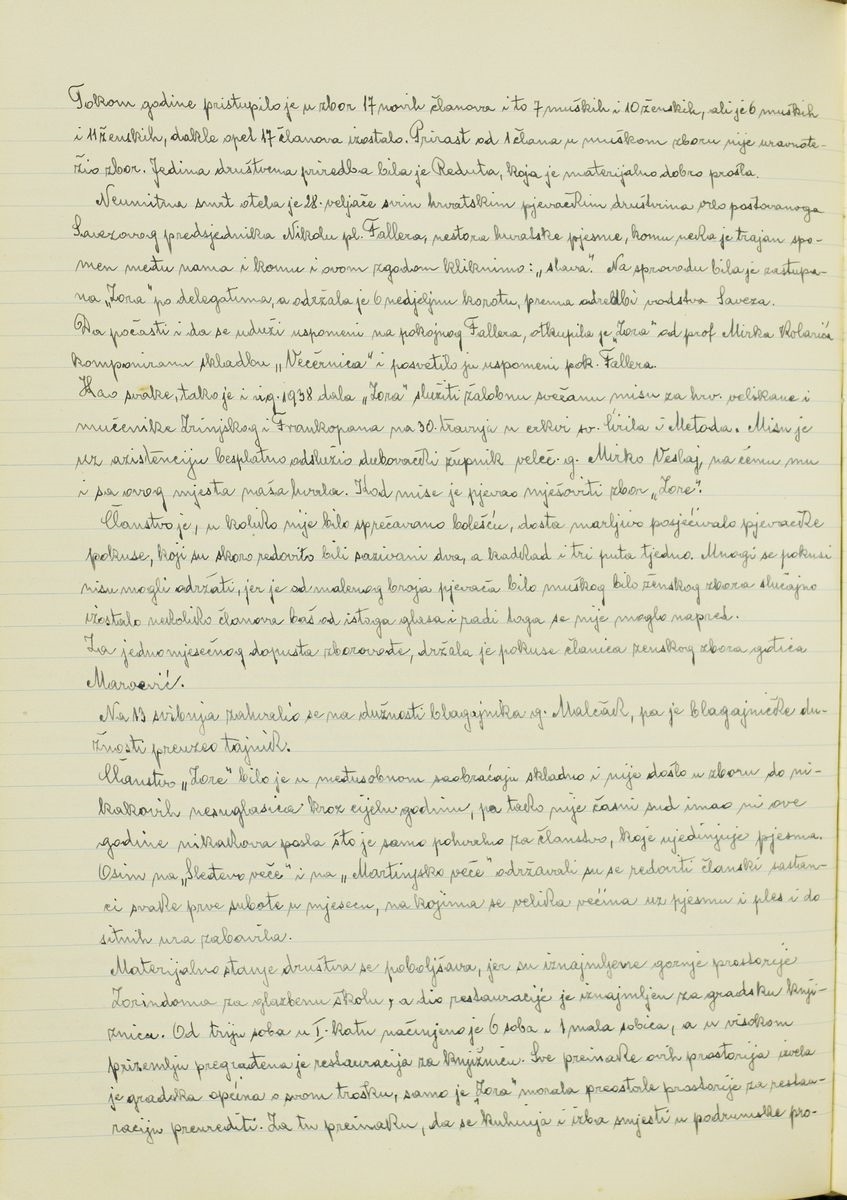 Tokom godine pristupilo je u zbor 17 novih članova i to 7 muških i 10 ženskih, ali je 6 muških
i 11 ženskih, dakle opet 17 članova izostalo. Prirast od 1 člana u muškom zboru nije uravnote-
žio zbor. Jedina društvena priredba bila je Reduta, koja je materijalno dobro prošla.
Neumitna smrt otela je 28. veljače svim hrvatskim pjevačkim društvima vrlo poštovanoga
Savezovog predsjednika Nikolu pl. Fallera, nestora hrvatske pjesme, komu neka je trajan spo-
men među nama i komu i ovom zgodom kliknimo: „slava“. Na sprovodu bila je zastupa-
na „Zora“ po delegatima, a održala je 6 nedjeljnu korotu, prema odredbi vodstva Saveza.
Da počasti i da se oduži uspomeni na pokojnog Fallera, otkupila je „Zora“ od prof Mirka Kolarića
komponiranu skladbu „Večernica“ i posvetila ju uspomeni pok. Fallera.
Kao svake, tako je i u g. 1938 dala „Zora“ služiti žalobnu svečanu misu za hrv. velikane i
mučenike Zrinjskog i Frankopana na 30. travnja u crkvi sv. Ćirila i Metoda. Misu je
uz azistenciju besplatno odslužio dubovački župnik veleč. g. Mirko Veslaj, na čemu mu
i sa ovog mjesta naša hvala. Kod mise je pjevao mješoviti zbor „Zore“.
Članstvo je, u koliko nije bilo sprečavano bolešću, dosta marljivo posjećivalo pjevačke
pokuse, koji su skoro redovito bili sazivani dva, a kadkad i tri puta tjedno. Mnogi se pokusi
nisu mogli održati, jer je od malenog broja pjevača bilo muškog bilo ženskog zbora slučajno
izostalo nekoliko članova baš od istoga glasa i radi toga se nije moglo napred.
Za jednomjesečnog dopusta zborovođe, držala je pokuse članica ženskog zbora gđica
Maroević.
Na 13 svibnja zahvalio se na dužnosti blagajnika g. Malčák, pa je blagajničke du-
žnosti preuzeo tajnik.
Članstvo „Zore“ bilo je u međusobnom saobraćaju skladno i nije došlo u zboru do ni-
kakovih nesuglasica kroz cijelu godinu, pa tako nije časni sud imao ni ove
godine nikakova posla što je samo pohvalno za članstvo, koje ujedinjuje pjesma.
Osim na „Sleđevo veče“ i na „Martinjsko veče“ održavali su se redoviti članski sastan-
ci svake prve subote u mjesecu, na kojima se velika većina uz pjesmu i ples i do
sitnih ura zabavila.
Materijalno stanje društva se poboljšava, jer su iznajmljene gornje prostorije
Zorindoma za glazbenu školu, a dio restauracije je iznajmljen za gradsku knji-
žnicu. Od triju soba u I. katu načinjeno je 6 soba i 1 mala sobica, a u visokom
prizemlju pregrađena je restauracija za knjižnicu. Sve preinake ovih prostorija izvela
je gradska općina o svom trošku, samo je „Zora“ morala preostale prostorije za restau-
raciju preurediti. Za tu preinaku, da se kuhinja i izba smjesti u podrumske pro-